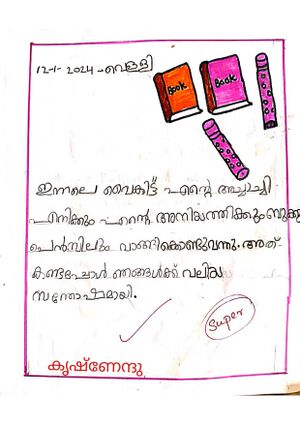 12-1-2024-വെള്ളി
Book
Book
ഇന്നലെ വൈകിട്ട് എന്റെ അച്ചാച്ചി
എനിക്കും എന്റെ അനിയത്തിക്കും ബുക്കു
പെൻസിലും വാങ്ങികൊണ്ടുവന്നു. അത്
കണ്ടപ്പോൾ ഞങ്ങൾക്ക് വലിയ
സന്തോഷമായി.
Super
കൃഷ്ണേന്ദു